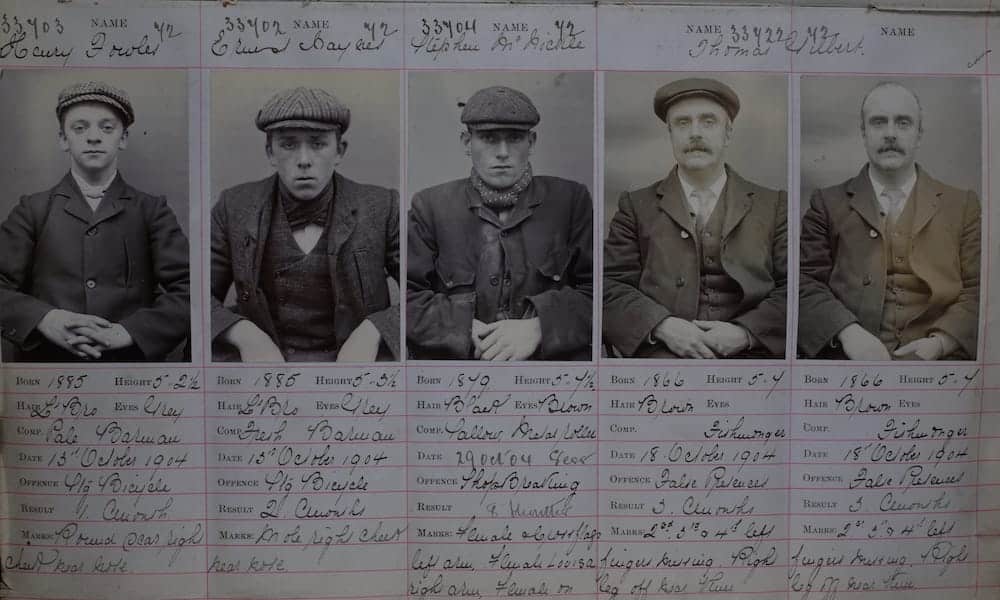 33703 NAME 72
Henry Fowles
33702 NAME 72
Ernest Haynes
33704 NAME 72
Stephen McNickle
NAME 33722 72 NAME
Thomas Gilbert
BORN 1885 HEIGHT 5-2½
HAIR Lt Bro EYES Grey
COMP. Pale Barman
DATE 13th October 1904
OFFENCE Stg Bicycle
RESULT 1. Cmonth
MARKS: Round scar right
cheek near nose.
BORN 1885 HEIGHT 5-3½
HAIR Lt Bro EYES Grey
COMP. Fresh Barman
DATE 13th October 1904
OFFENCE Stg Bicycle
RESULT 2 Cmonths
MARKS: Mole right cheek
near nose.
BORN 1879 HEIGHT 5-7½
HAIR Black EYES Brown
COMP. Sallow
DATE 29 Oct 04
OFFENCE Shop Breaking
RESULT
MARKS: Female
left arm, Female Louisa
right arm, Female on
BORN 1866 HEIGHT 5-4
HAIR Brown EYES
COMP. Fishmonger
DATE 18th October 1904
OFFENCE False Pretences
RESULT 3. Cmonths
MARKS: 2nd 3rd & 4th left
fingers missing. Right
leg off near knee
BORN 1866 HEIGHT 5-4
HAIR Brown EYES
COMP. Fishmonger
DATE 18th October 1904
OFFENCE False Pretences
RESULT 3. Cmonths
MARKS: 2nd 3rd & 4th left
fingers missing. Right
leg off near knee